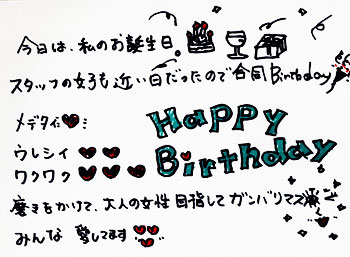 今日は、私のお誕生日
スタッフの女子も近い日だったので合同Birthday
メデタイ
ウレシイ
ワクワク
Happy
Birthday
磨きをかけて、大人の女性目指してガンバリマス
みんな愛してます